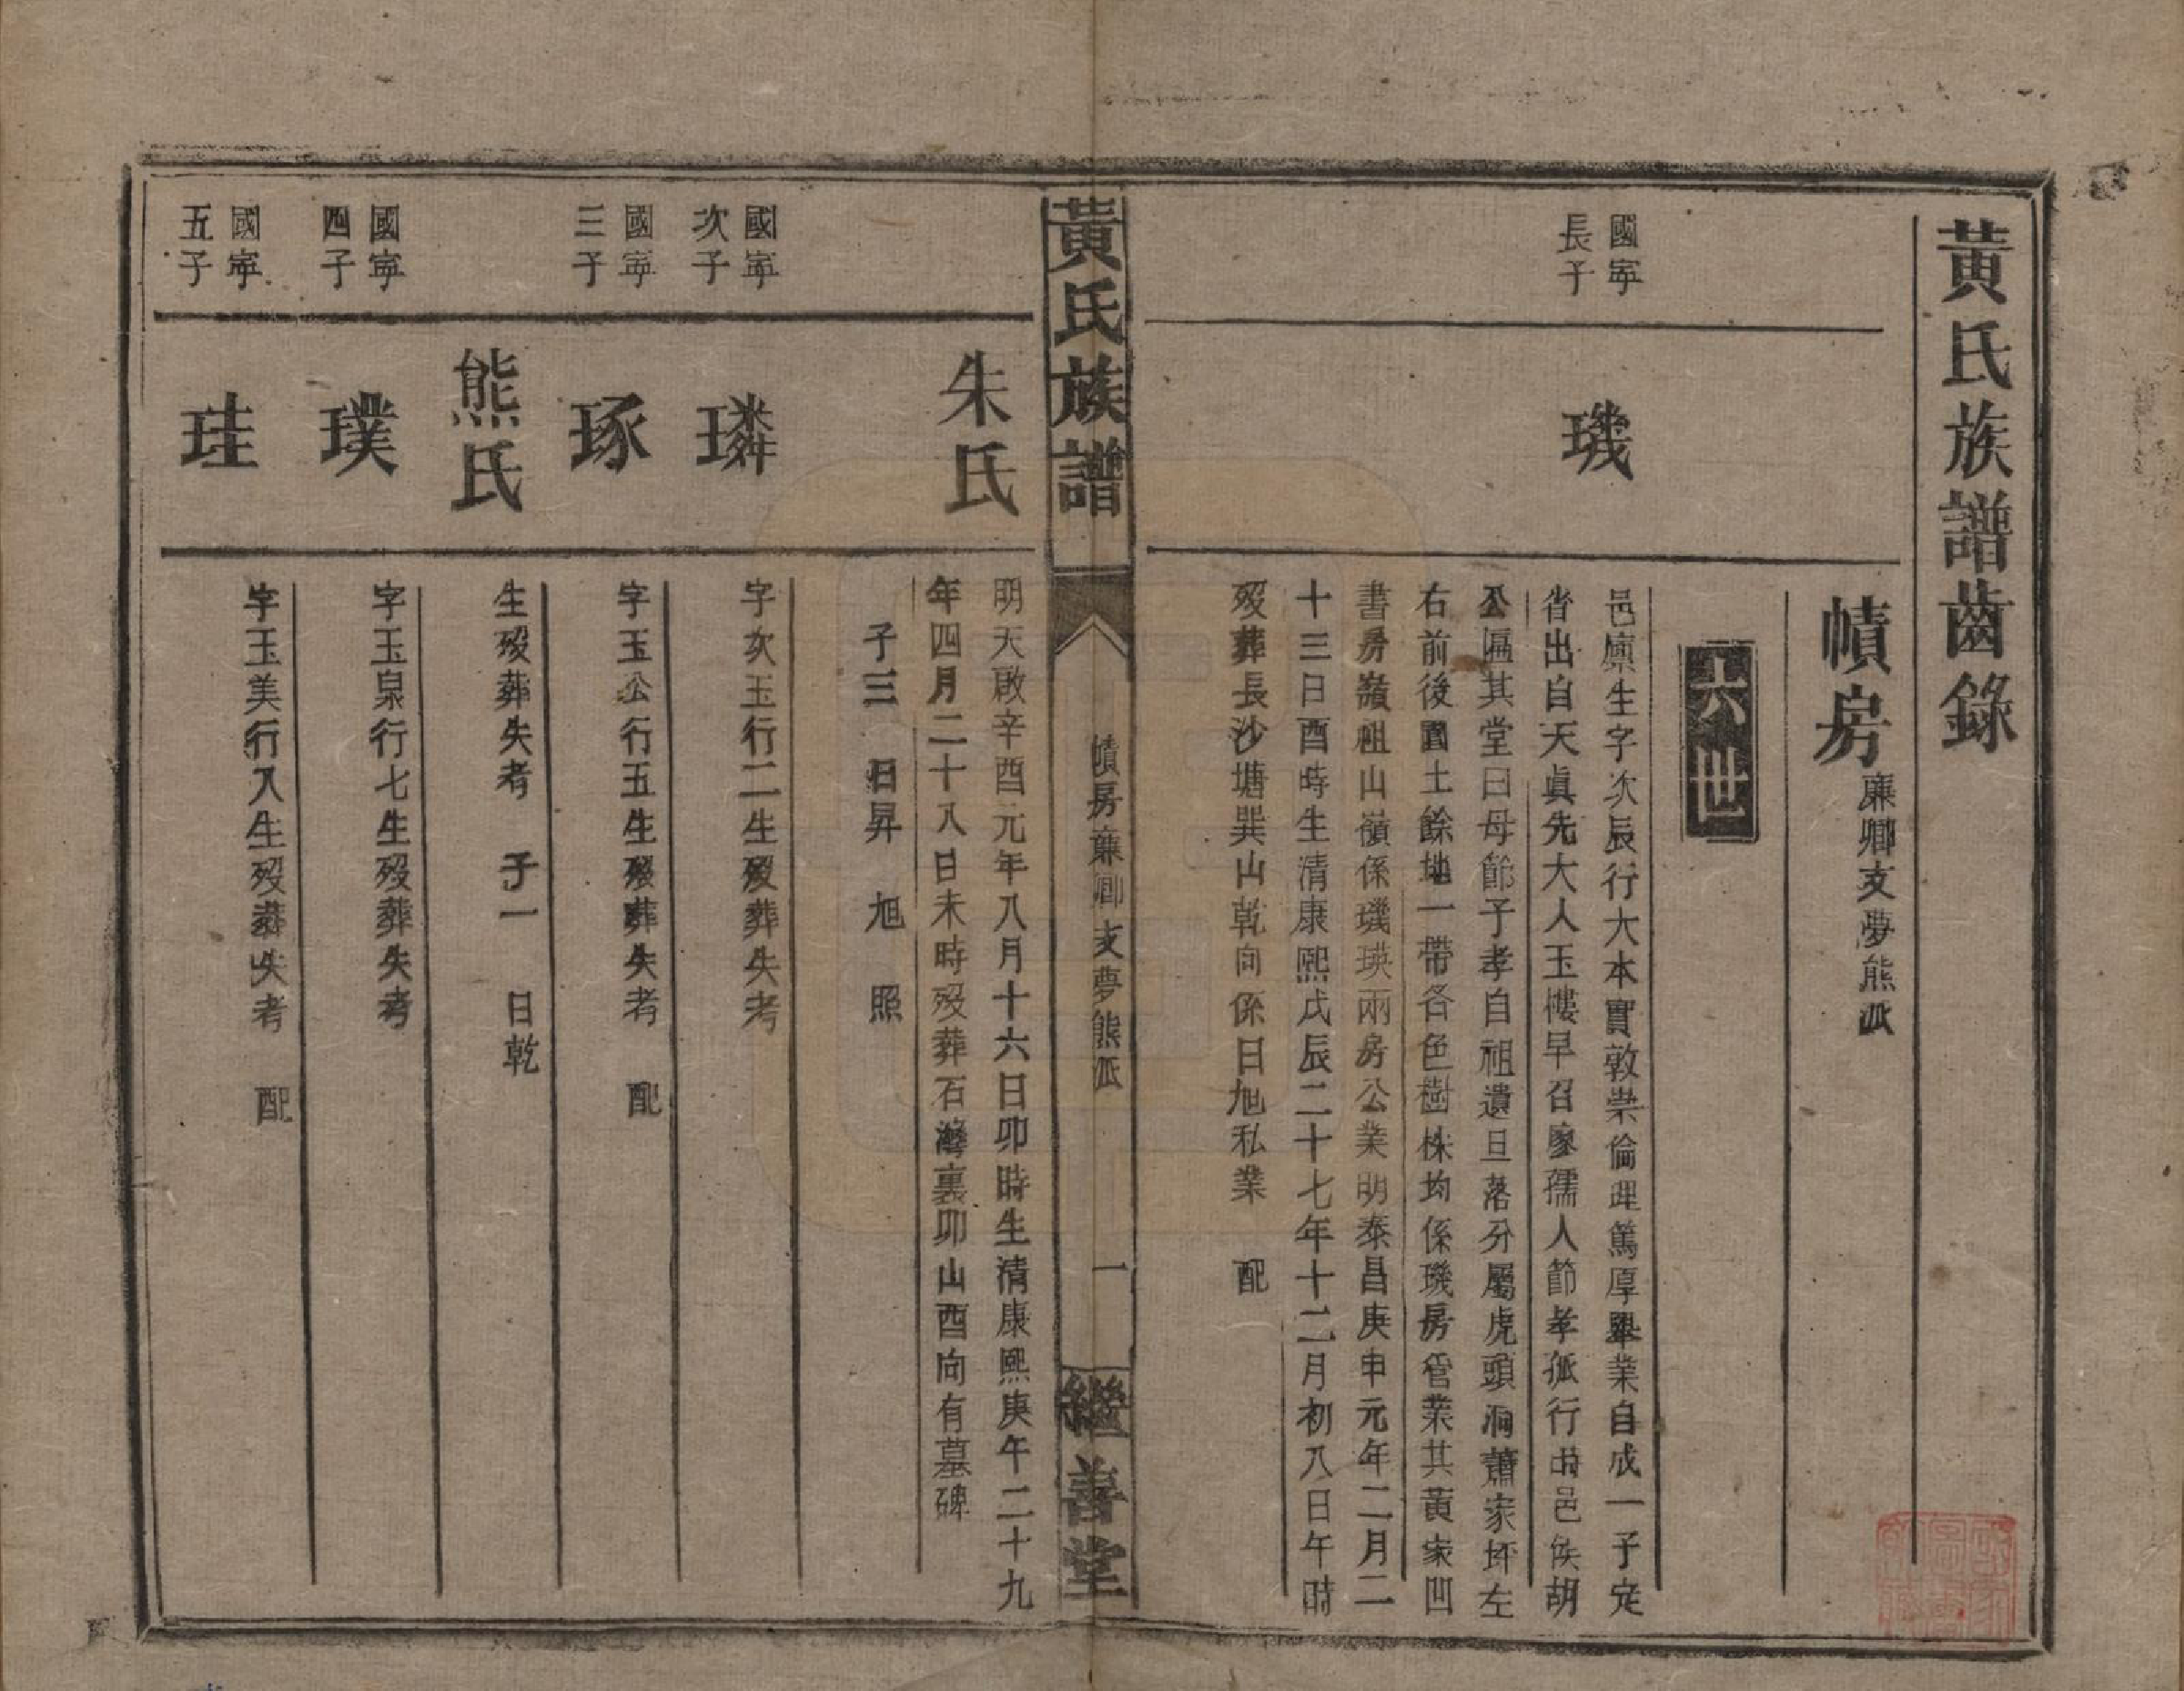 黃氏族譜齒錄
幘房
廉卿支夢熊派
六世
國寧
長子
璣
邑廩生字次辰行大本實敦崇倫理篤厚舉業自成一子定
省出自天眞先大人玉樓早召廖孺人節孝孤行由邑侯胡
公匾其堂曰母節子孝自祖遺旦落分屬虎頭洞蕭家坪左
右前後園土餘地一帶各色樹株均係璣房管業其黃家凹
書房嶺祖山嶺係璣瑛兩房公業明泰昌庚申元年二月二
十三日酉時生清康熙戊辰二十七年十二月初八日午時
歿葬長沙塘巽山乾向係日旭私業 配
黃氏族譜
幘房廉卿支夢熊派
一
繼善堂
朱氏
明天啟辛酉元年八月十六日卯時生清康熙庚午二十九
年四月二十八日未時歿葬石灣裏卯山酉向有墓碑
子三 日昇 旭 照
國寧
次子
璘
字次玉行二生歿葬失考
國寧
三子
琢
字玉公行五生歿葬失考 配
熊氏
生歿葬失考 子一 日乾
國寧
四子
璞
字玉泉行七生歿葬失考
國寧
五子
珪
字玉美行八生歿葬失考 配